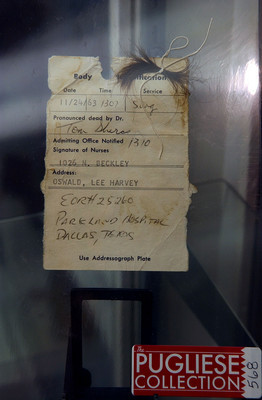 Body ification
Date Time Service
11/24/63 1307 Surg
Pronounced dead by Dr.
Tom Shires
Admitting Office Notified 1310
Signature of Nurses
1026 N. BECKLEY
Address:
OSWALD, LEE HARVEY
EOR# 25260
PARKLAND HOSPITAL
DALLAS, TEXAS
Use Addressograph Plate
The
PUGLIESE
COLLECTION
568